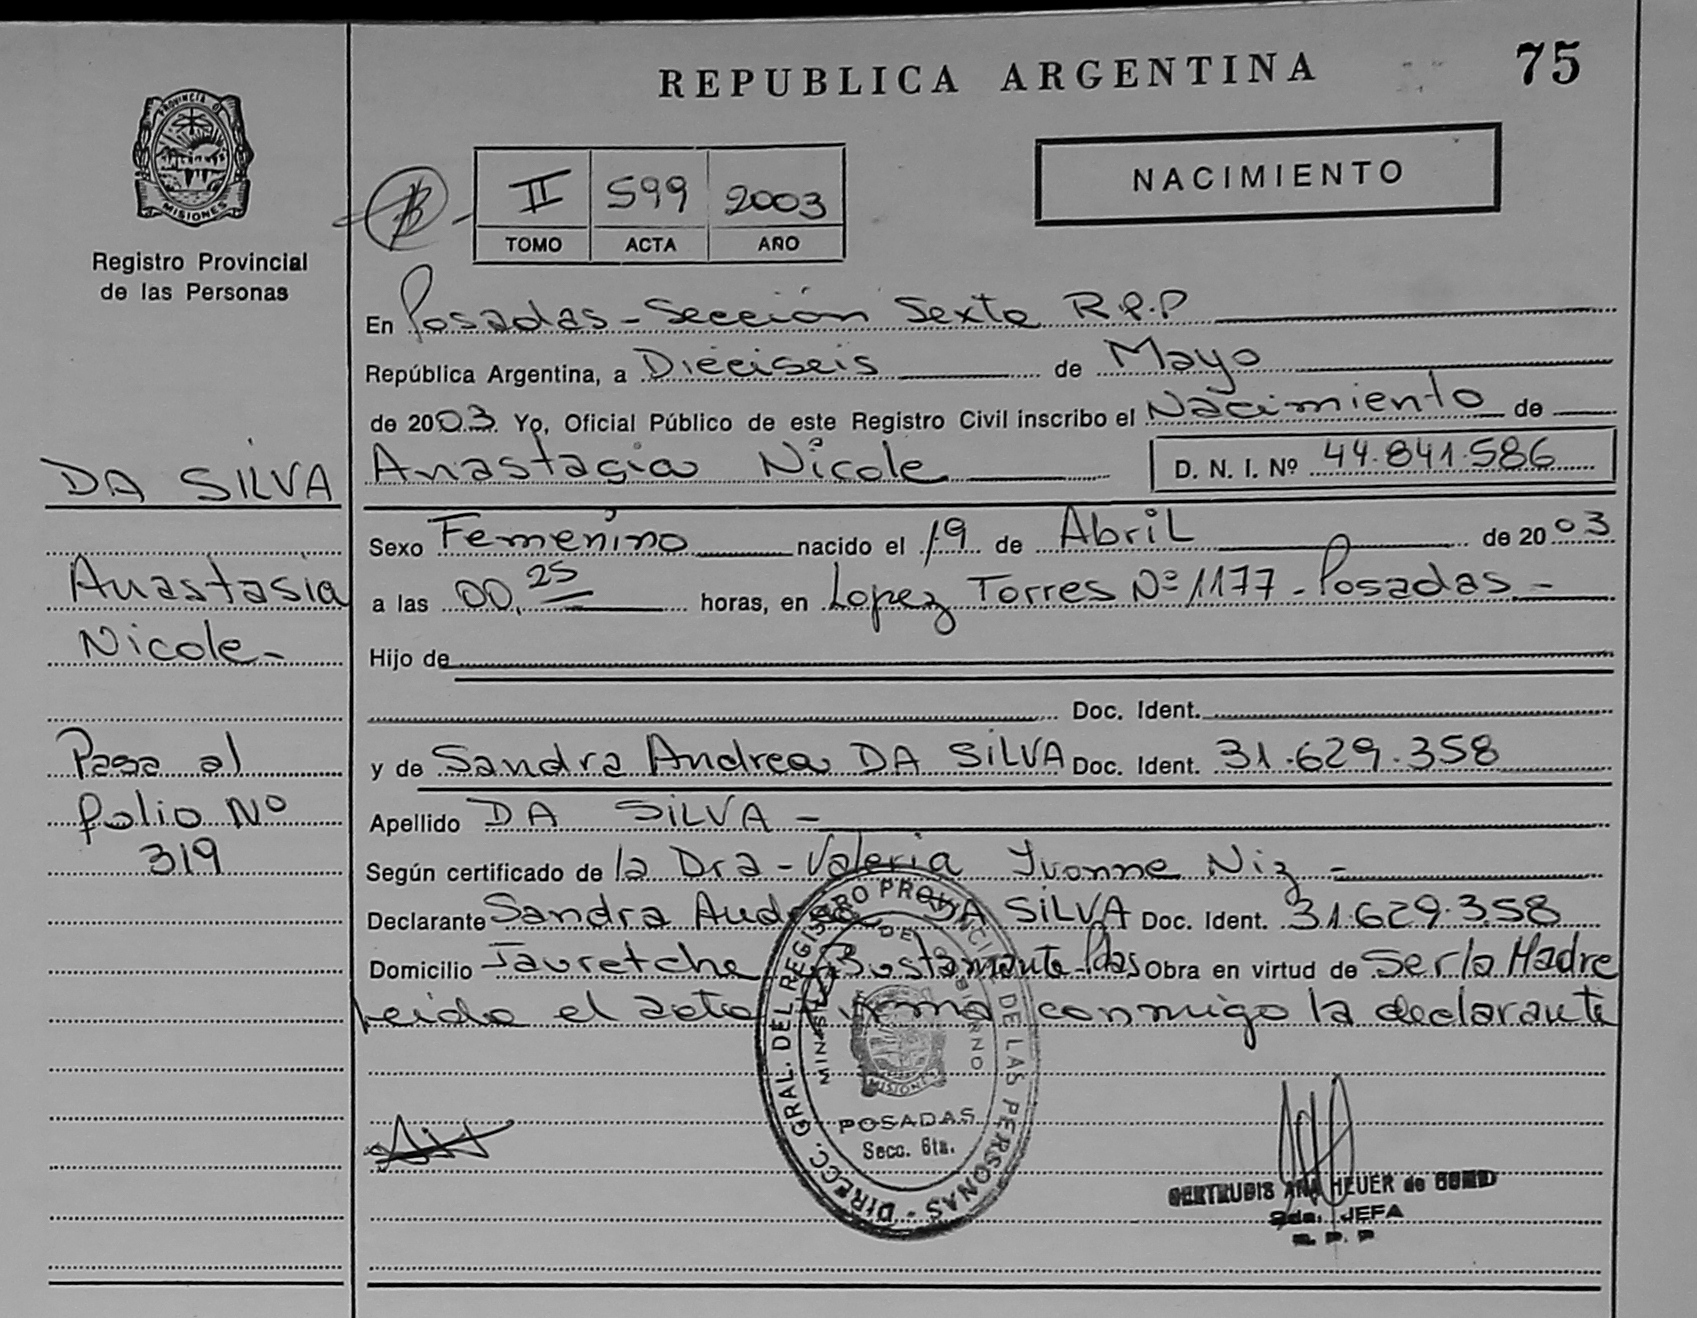 REPUBLICA ARGENTINA
75
PROVINCIA DE
MISIONES
Registro Provincial
de las Personas
II 599 2003
TOMO ACTA AÑO
NACIMIENTO
En Posadas - Sección Sexta R.P.P
República Argentina, a Dieciseis de Mayo
de 2003. Yo, Oficial Público de este Registro Civil inscribo el Nacimiento de
Anastacia Nicole D. N. I. Nº 44.841.586
Sexo Femenino nacido el 19 de Abril de 2003
a las 00,25 horas, en Lopez Torres Nº 1177 - Posadas -
Hijo de
Doc. Ident.
y de Sandra Andrea DA SILVA Doc. Ident. 31.629.358
Apellido DA SILVA -
Según certificado de la Dra - Valeria Yvonne Niz -
Declarante Sandra Andrea DA SILVA Doc. Ident. 31.629.358
Domicilio Jauretche Bustamante Pdas Obra en virtud de Ser la Madre
Leida el acta firma conmigo la declarante
DA SILVA
Anastasia
Nicole -
Pasa al
folio Nº
319
DIRECC. GRAL. DEL REGISTRO PROVINCIAL DE LAS PERSONAS
DE GOBIERNO
MISIONES
POSADAS
Secc. 6ta.
GERTRUDIS ANA HEUER de
2da. JEFA
R. P. P